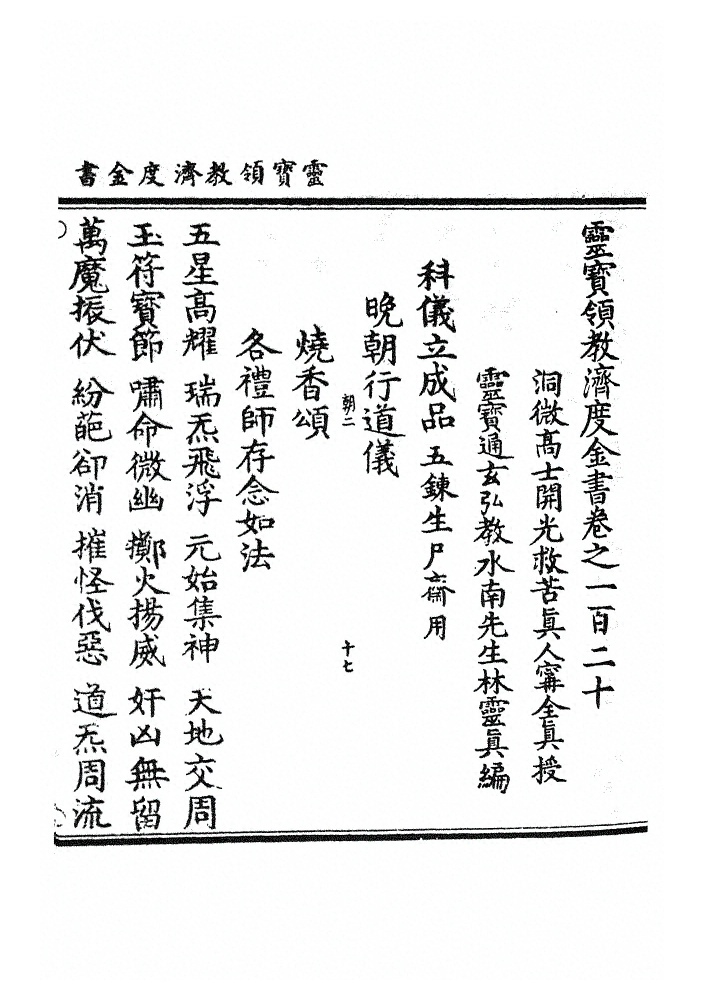 靈寶領教濟度金書
靈寶領教濟度金書卷之一百二十
洞微高士開光救苦眞人寗全眞授
靈寶通玄弘教水南先生林靈眞編
科儀立成品 五鍊生尸齋用
晩朝行道儀
朝二 十七
燒香頌
各禮師存念如法
五星高耀 瑞炁飛浮 元始集神 天地交周
玉符寶節 嘯命微幽 擲火揚威 奸凶無留
萬魔振伏 紛葩卻消 摧怪伐惡 道炁周流